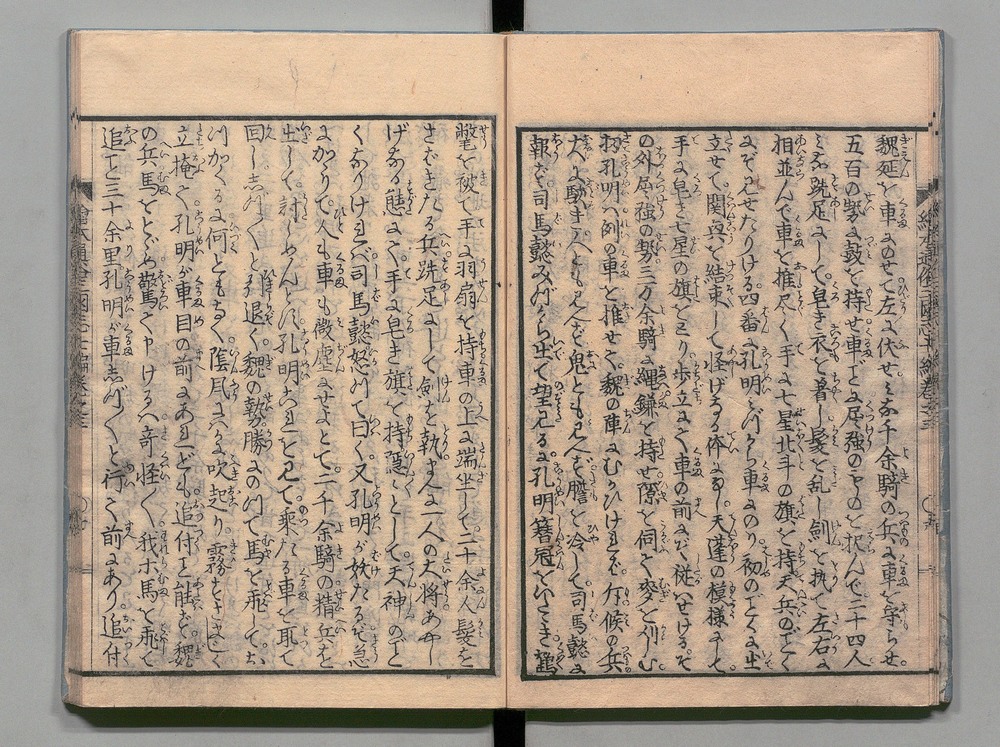 魏延を車にのせて左に伏せみな千余騎の兵に車を守らせ。
五百の勢に鼓を持せ車ごとに屈強のものを択んで二十四人
みな跣足にして。皂き衣を着し髪を乱し剣を執て左右に
相並んで車を推尽く手に七星北斗の旗を持天兵のごとく
にぞ見せたりける四番に孔明みづから車にのり初のごとくに出
立せて。関興を結束して怪げなる体なり。天蓬の模様にして
手に皂き七星の旗をとり歩立にて車の前にぞ従はせける。そ
の外屈強の勢三万余騎に縄鎌を持せ隙を伺て麦を刈しむ
扨孔明ハ例の車を推せて。魏の陣にむかひけれバ。斥候の兵
大に驚き人とも見へず鬼とも見へず膽を冷して司馬懿に
報ず司馬懿みづから出て望見るに孔明簪冠をいたゞき鶴
氅を被て手に羽扇を持車の上に端坐して。二十余人髪を
さばきたる兵跣足にして剣を執またに一人の大将あやし
げなる態にて。手に皂き旗を持隠々として天神のごと
くなりけれバ司馬懿怒つて曰く。又孔明が妖たるぞ急
にかゝりて。人も車も微塵にせよとて。二千余騎の精兵を
出して。討しめんとす。孔明これを見て。乗たる車を取て
回し。しづ〳〵と引退く魏の勢勝にのつて馬を飛して。お
つかくるに何ともなく陰風にハかに吹起り。霧さうさうとして
立掩て孔明が車目の前にあれども。追付こと能ず。魏
の兵馬をとゞめ驚て申けるハ奇怪や我ホ馬を飛て
追こと三十余里孔明が車しづ〳〵と行て前にあり。追付